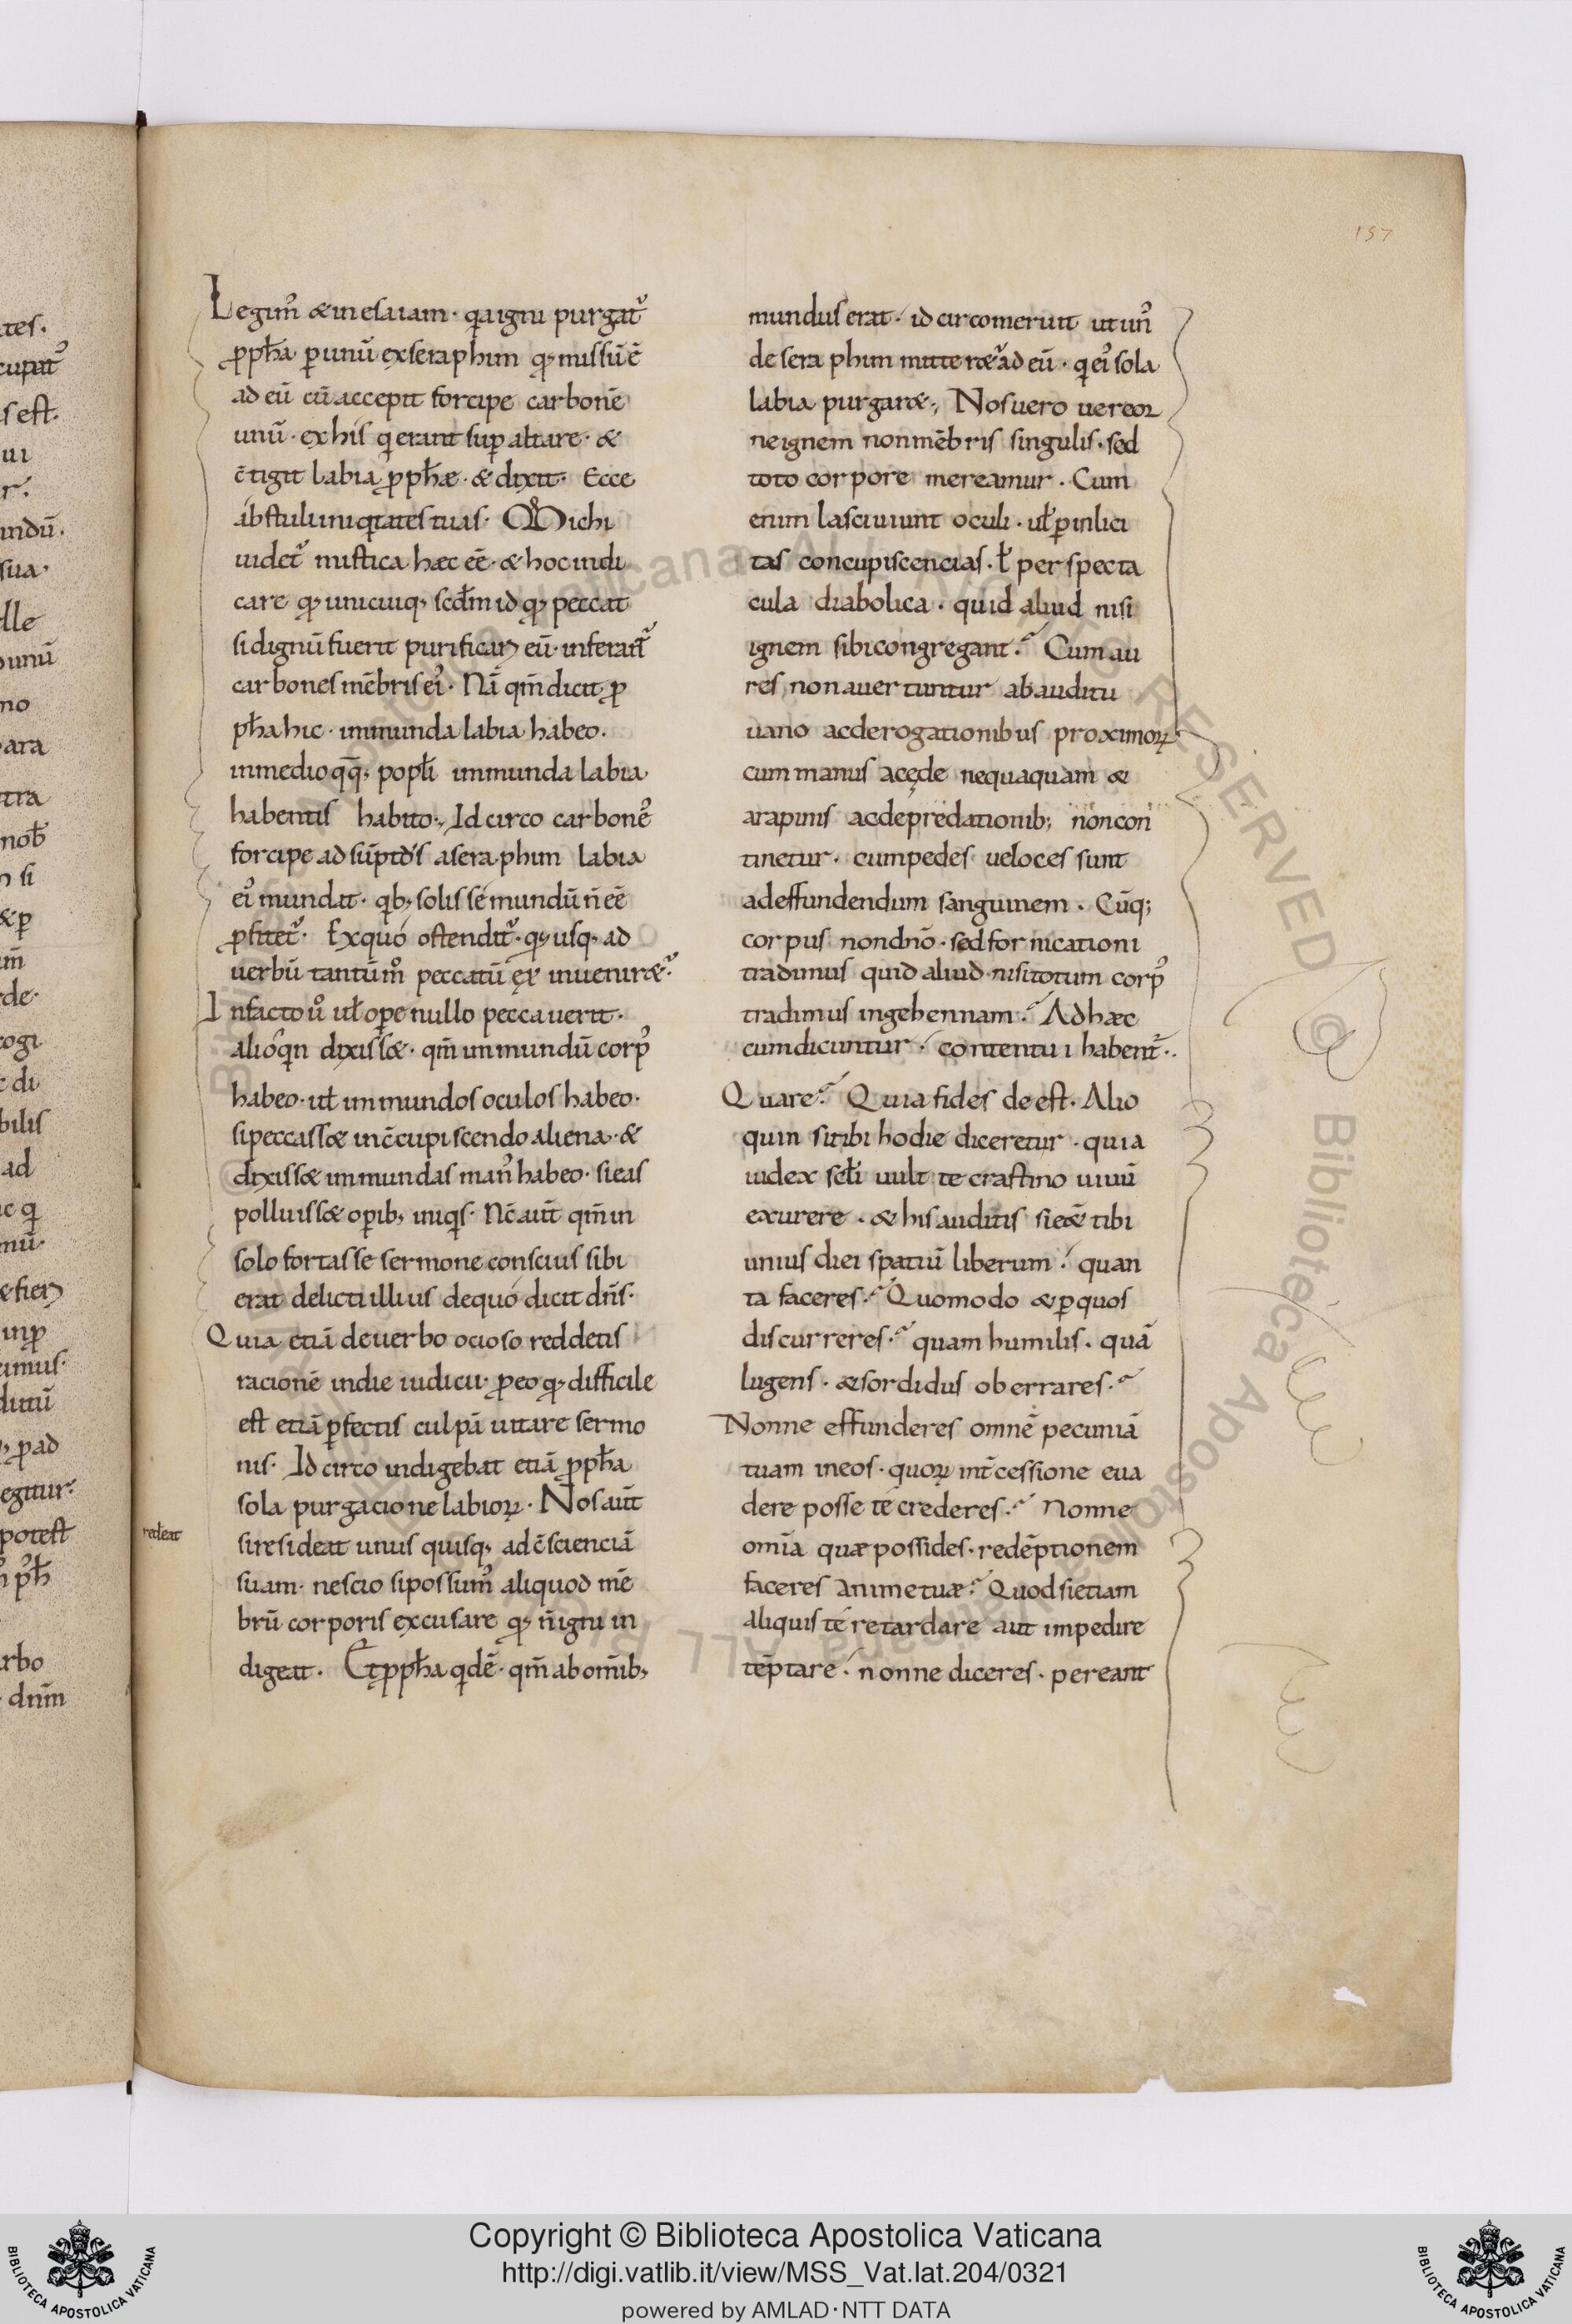 157
Legim᷒ & in esaiam · q̇a igni purgat᷒
ꝓph̄a ꝑ unū ex seraphim qꝫ missū ē
ad eū cū accepit forcipe carbonē
unū · ex his q̇ erant suꝑ altare · &
c̄tigit labia ꝓph̄æ · & dixit · Ecce
abstuli iniq̇tates tuas · Michi
uidet᷒ mistica hæc eē · & hoc indi
care qꝫ unicuiqꝫ scd̄m id qꝫ peccat
si dignū fuerit purificari eū · inferant᷒
carbones mēbris ei᷒ · Nā qm̄ dicit ꝓ
ph̄a hic · immunda labia habeo ·
in medio qq̄ꝫ popl̄i immunda labia
habentis habito ·, Idcirco carbone᷒
forcipe adsūpt᷒ de his a seraphim labia
ei᷒ mundat · q̇bꝫ solis se mundū n̄ eē
ꝓfitet᷒ · Ex quo ostendit᷒ · qꝫ usqꝫ ad
uerbū tantūm᷒ peccatū ei᷒ inuenir&᷒ ·
In facto u᷒ ul̄ oꝑe nullo peccauerit ·
alioq̇n dixiss& · qm̄ immundū corp᷒
habeo · ul̄ immundos oculos habeo ·
si peccass& in c̄cupiscendo aliena · &
dixiss& immundas man᷒ habeo · si eas
polluiss& oꝑibꝫ iniq̇s · Nc̄ aut̄ qm̄ in
solo fortasse sermone conscius sibi
erat delicti illius de quo dicit dn̄s ·
Quia etiā de uerbo ocioso reddetis
racionē in die iudicii · ꝓeo qꝫ difficile
est etiā ꝑfectis culpā uitare sermo
nis · Idcirco indigebat etiā ꝓph̄a
sola purgacione labioꝝ · Nos aut̄
redeat
si resideat unusquisqꝫ ad c̄scienciā
suam · nescio si possum᷒ aliquod mē
brū corporis excusare qꝫ n̄ igni in
digeat · Et ꝓph̄a q̇dē · qm̄ ab om̄ibꝫ
mundus erat · idcirco meruit ut un᷒
de seraphim mitter&᷒ ad eū · q̇ ei᷒ sola
labia purgar& ·, Nos uero uereor
ne ignem non mēbris singulis · sed
toto corpore mereamur · Cum
enim lasciuiunt oculi · ul̄ ꝑ inlici
tas concupiscencias · ł per specta
cula diabolica · quid aliud nisi
ignem sibi congregant · Cum au
res non auertuntur ab auditu
uano ac derogationibus proximoꝝ
cum manus a cęde nequaquam &
a rapinis ac depredationib; non con
tinetur · cum pedes ueloces sunt
ad effundendum sanguinem · Cūq;
corpus non dn̄o · sed fornicationi
tradimus quid aliud nisi totum corp᷒
tradimus in gehennam · Ad hæc
cum dicuntur · contentui habent᷒ ·
Quare · Quia fides deest · Alio
quin si tibi hodie diceretur · quia
iudex scl̄i uult te crastino uiuū
exurere · & his auditis si e&̄ tibi
unius diei spatiū liberum · quan
ta faceres · Quomodo & ꝑ quos
discurreres · quam humilis · quā
lugens · & sordidus oberrares ·
Nonne effunderes omnē pecuniā
tuam in eos · quoꝝ int̄cessione eua
dere posse te crederes · Nonne
om̄ia quæ possides · redēptionem
faceres animetuæ · Quod si etiam
aliquis te retardare aut impedire
tēptare · nonne diceres · pereant
Copyright © Biblioteca Apostolica Vaticana
http://digi.vatlib.it/view/MSS_Vat.lat.204/0321
powered by AMLAD·NTT DATA